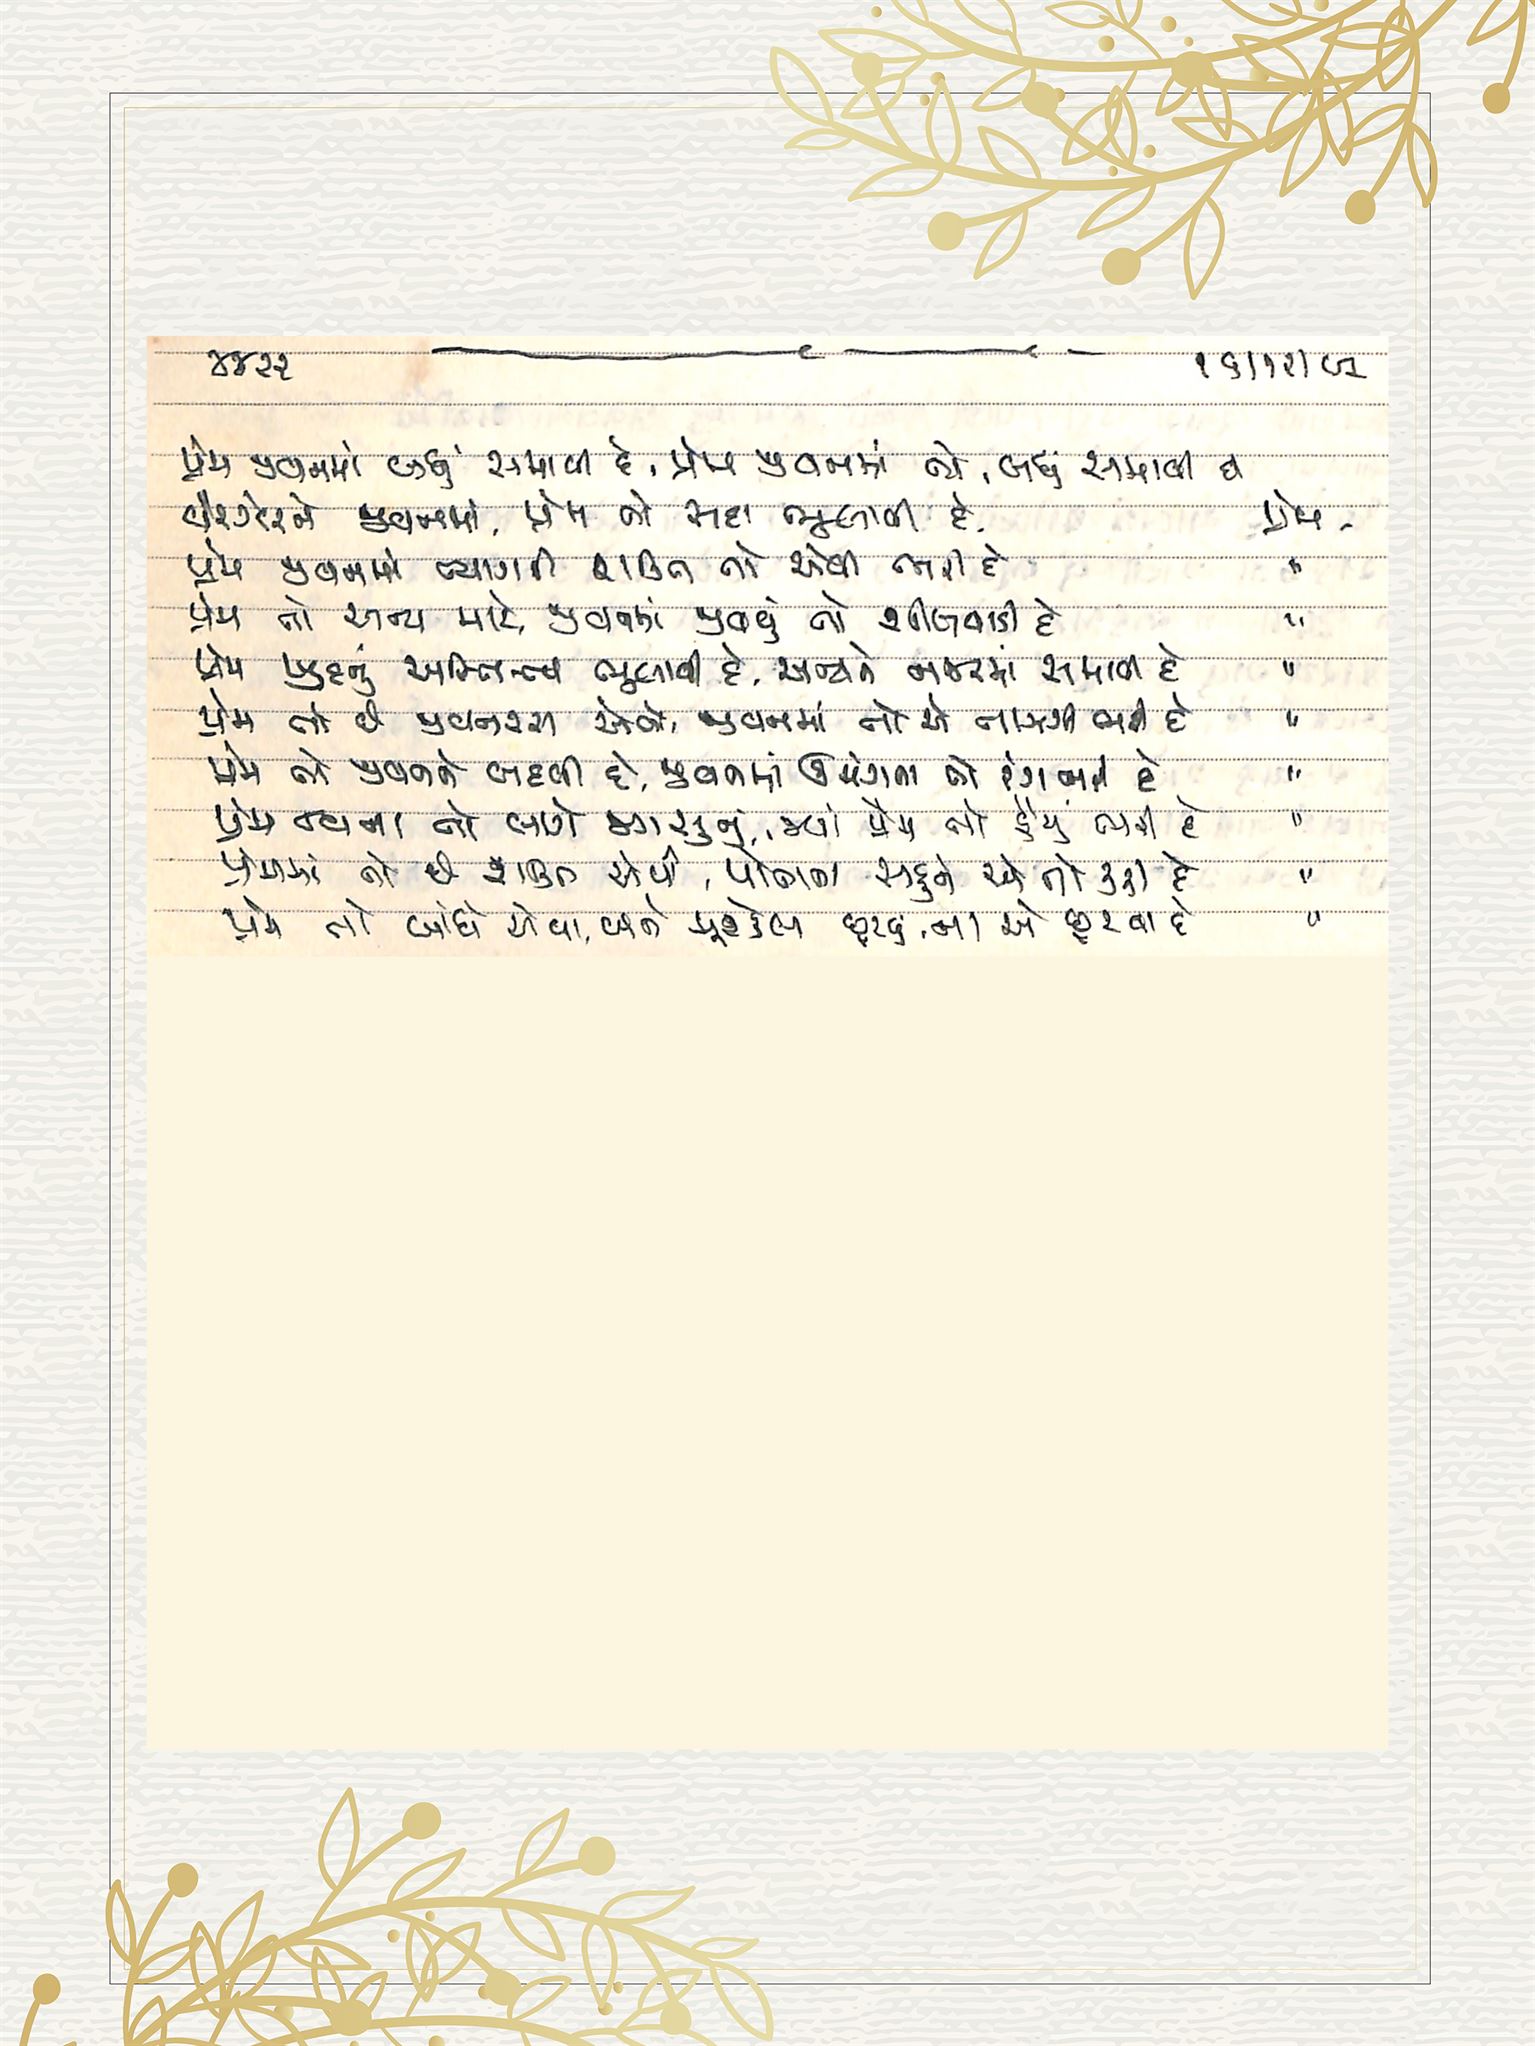 ૪૪૨૨ ૧૬/૧૨/૯૨
પ્રેમ જીવનમાં બધું સમાવી દે, પ્રેમ જીવનમાં તો, બધું સમાવી દે
વૈરઝેરને જીવનમાં, પ્રેમ તો સદા ભુલાવી દે. પ્રેમ -
પ્રેમ જીવનમાં ત્યાગની શક્તિ તો એવી ભરી દે "
પ્રેમ તો અન્ય માટે, જીવનમાં જીવવું તો શીખવાડી દે "
પ્રેમ ખુદનું અસ્તિત્વ ભુલાવી દે, અન્યને નજરમાં સમાવી દે "
પ્રેમ તો છે જીવનરસ એવો, જીવનમાં તો એ તાજગી ભરી દે "
પ્રેમ તો જીવનને બદલી દે, જીવનમાં ઉમંગના તો રંગ ભરી દે "
પ્રેમ વિના તો લાગે જગ સુનું, જ્યાં પ્રેમ તો હૈયું ભરી દે "
પ્રેમમાં તો છે શક્તિ એવી, પોતાના સહુને એ તો કરી દે "
પ્રેમ તો બાંધે એવા, બને મુશ્કેલ છૂટવું, ના એ છૂટવા દે "